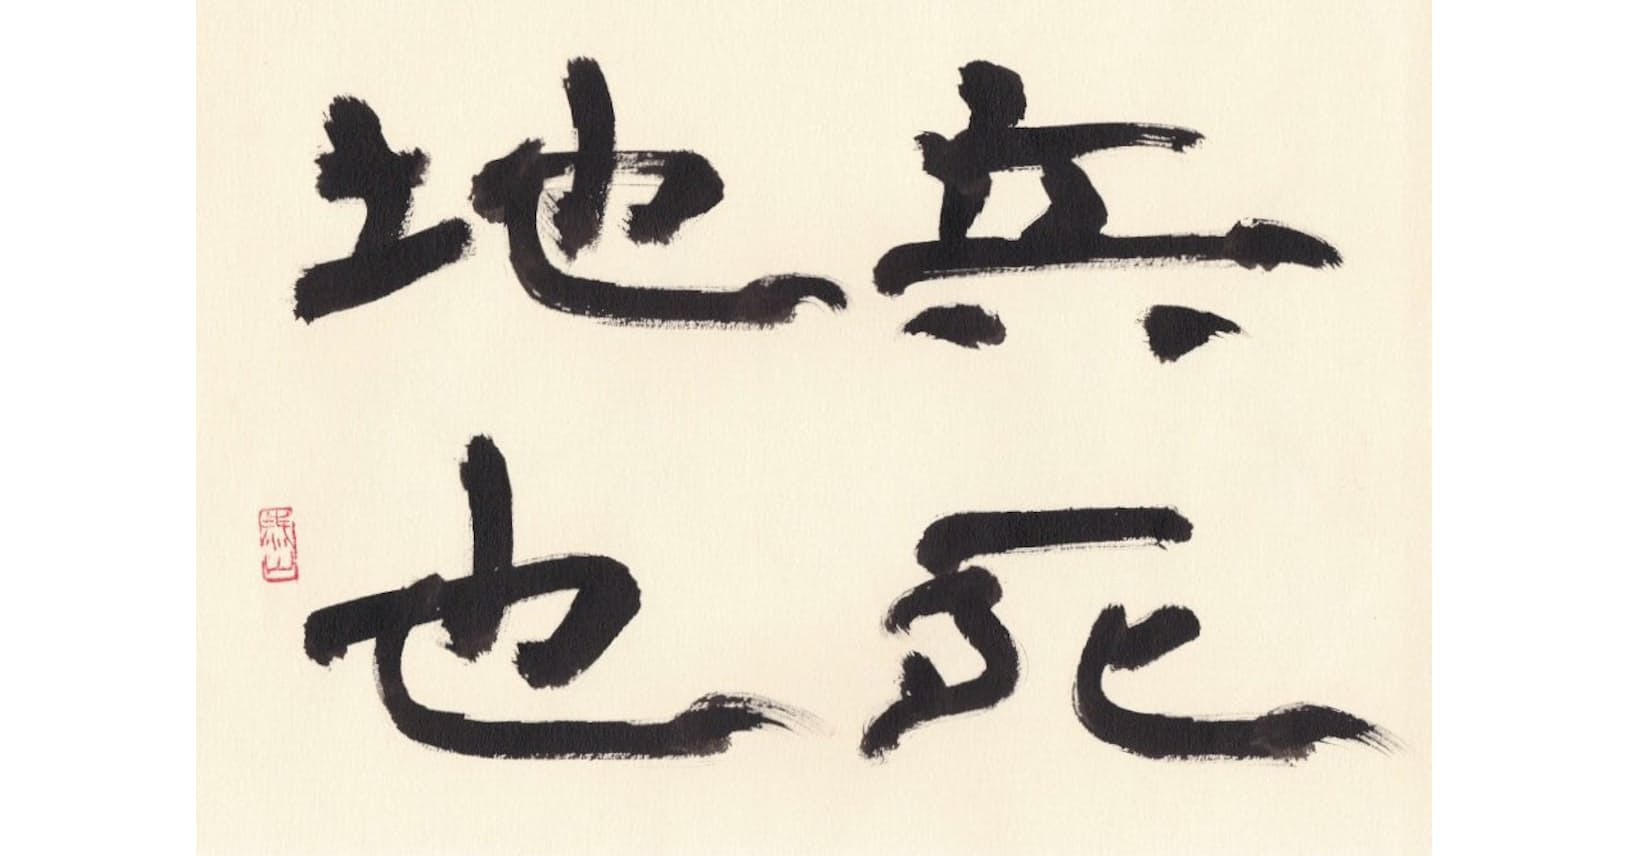 兵死
地也